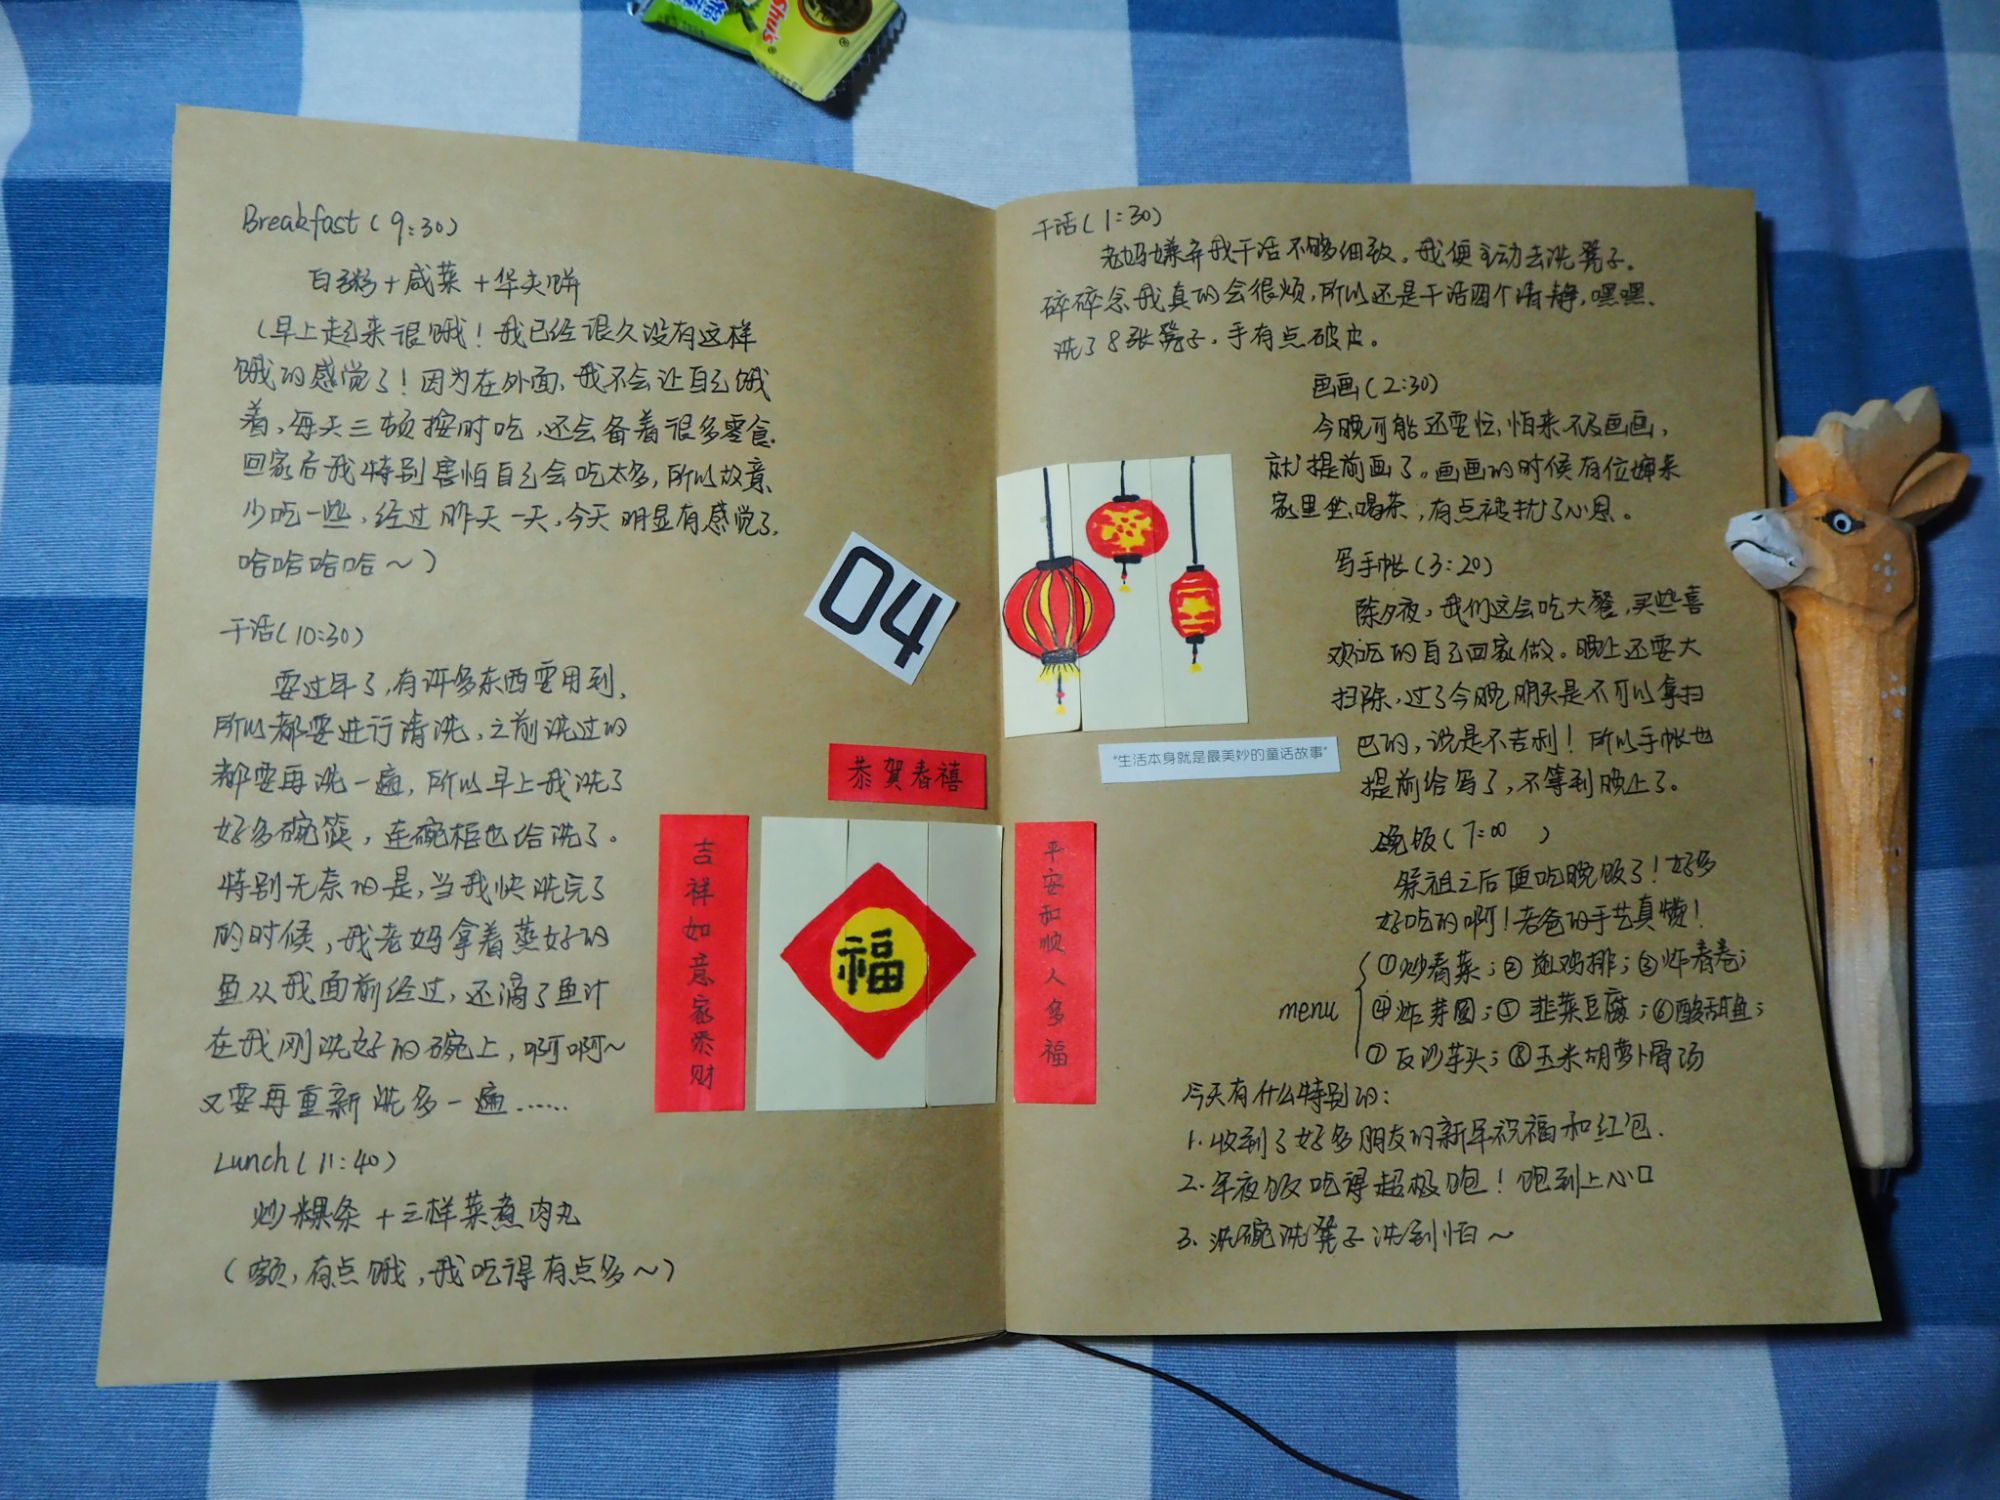 Shu's
Breakfast(9:30)
白粥+咸菜+华夫饼
(早上起来很饿!我已经很久没有这样
饿的感觉了!因为在外面,我不会让自己饿
着,每天三顿按时吃,还会备着很多零食.
回家后我特别害怕自己会吃太多,所以故意
少吃一些,经过昨天一天,今天明显有感觉了,
哈哈哈哈~)
干活(10:30)
要过年了,有许多东西要用到,
所以都要进行清洗,之前洗过的
都要再洗一遍,所以早上我洗了
好多碗筷,连碗柜也给洗了。
特别无奈的是,当我快洗完了
的时候,我老妈拿着蒸好的
鱼从我面前经过,还滴了鱼汁
在我刚洗好的碗上,啊啊~
又要再重新洗多一遍……
Lunch(11:40)
炒粿条+三样菜煮肉丸
(额,有点饿,我吃得有点多~)
04
恭贺春禧
吉祥如意家添财
福
平安和顺人多福
"生活本身就是最美妙的童话故事"
干活(1:30)
老妈嫌弃我干活不够细致,我便主动去洗凳子。
碎碎念我真的会很烦,所以还是干活图个清静,嘿嘿、
洗了8张凳子,手有点破皮。
画画(2:30)
今晚可能还要忙,怕来不及画画,
就提前画了。画画的时候有位婶来
家里坐,喝茶,有点被扰了心思。
写手帐(3:20)
除夕夜,我们这会吃大餐,买些喜
欢吃的自己回家做。晚上还要大
扫除,过了今晚明天是不可以拿扫
巴的,说是不吉利!所以手帐也
提前给写了,不等到晚上了。
晚饭(7:00 )
祭祖之后便吃晚饭了!好多
好吃的啊!老爸的手艺真赞!
①炒春菜;②卤鸡排;③炸春卷;
menu ④炸芋圆;⑤韭菜豆腐;⑥酸甜鱼;
⑦反沙芋头;⑧玉米胡萝卜骨汤
今天有什么特别的:
1.收到了好多朋友的新年祝福和红包.
2.年夜饭吃得超级饱!饱到上心口
3.洗碗洗凳子洗到怕~